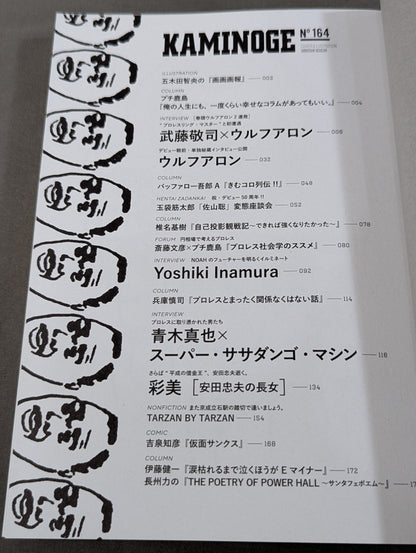 KAMINOGE Nº 164
ILLUSTRATION
五木田智央の『画画画報』 ── 003
COLUMN
プチ鹿島
『俺の人生にも、一度くらい幸せなコラムがあってもいい。』 ── 004
INTERVIEW [春爛ウルフアロン2連発]
"プロレスリング・マスター"と初遭遇
武藤敬司×ウルフアロン ── 006
デビュー戦前・単独秘蔵インタビュー公開
ウルフアロン ── 032
COLUMN
バッファロー吾郎A『きむコロ列伝!!』 ── 048
HENTAI ZADANKAI 祝・デビュー50周年!!
玉袋筋太郎『佐山聡』変態座談会 ── 052
COLUMN
椎名基樹『自己投影観戦記〜できれば強くなりたかった〜』 ── 078
FORUM 円相場で考えるプロレス
斎藤文彦×プチ鹿島『プロレス社会学のススメ』 ── 080
INTERVIEW NOAHのフューチャーを明るくイルミネート
Yoshiki Inamura ── 092
COLUMN
兵庫慎司『プロレスとまったく関係なくはない話』 ── 114
INTERVIEW
プロレスに取り憑かれた男たち
青木真也×
スーパー・ササダンゴ・マシン ── 116
さらば"平成の借金王"、安田忠夫逝く。
彩美[安田忠夫の長女] ── 134
NONFICTION また京成立石駅の踏切で逢いましょう。
TARZAN BY TARZAN ── 154
COMIC
吉泉知彦『仮面サンクス』 ── 168
COLUMN
伊藤健一『涙枯れるまで泣くほうがEマイナー』 ── 172
長州力の『THE POETRY OF POWER HALL 〜サンタフェポエム〜』 ── 17